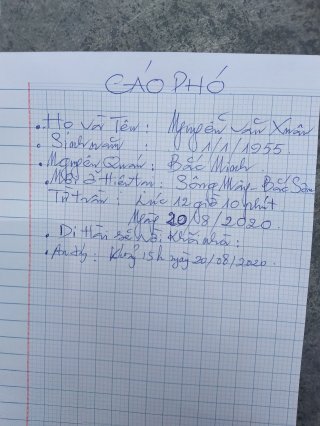 CÁO PHÓ
Họ và Tên: Nguyễn Văn Xuân
Sinh năm: 1/1/1955.
Nguyên Quán: Bắc Ninh.
Nơi ở Hiện: Sông Mây Bắc Sơn
Từ trần: Lúc 12 giờ 10 phút
Ngày 20/8/2020.
Di
An táng: 15h ngày 20/08/2020.